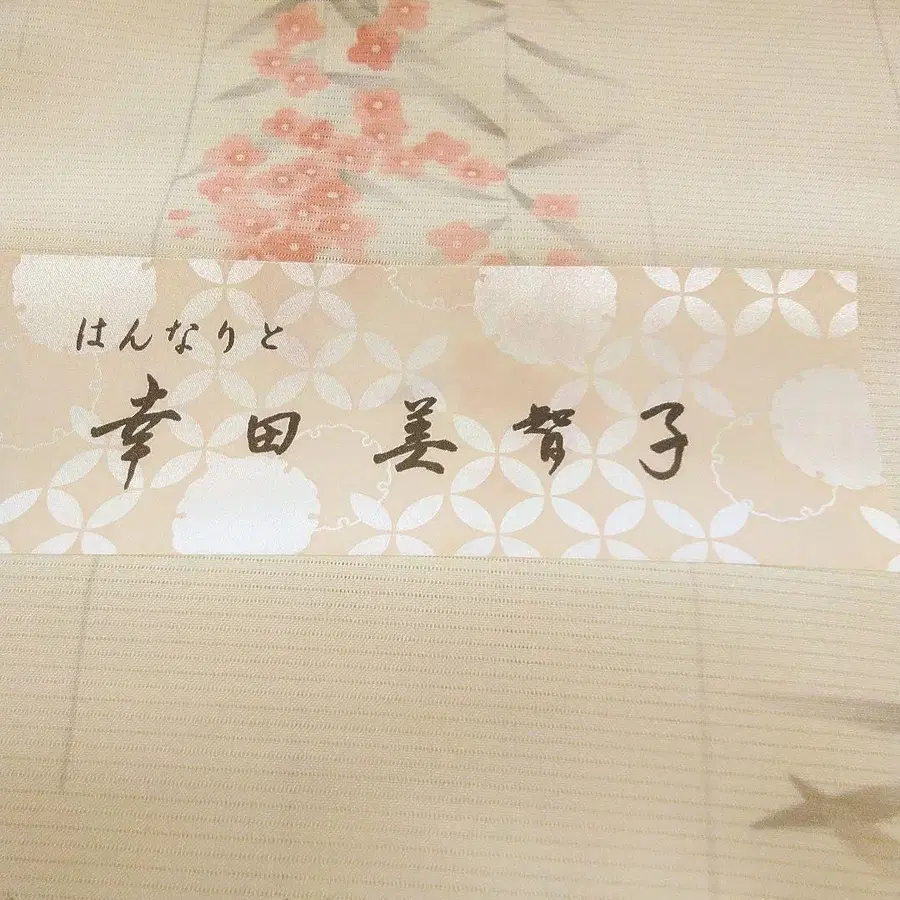 はんなりと
幸田 美智子